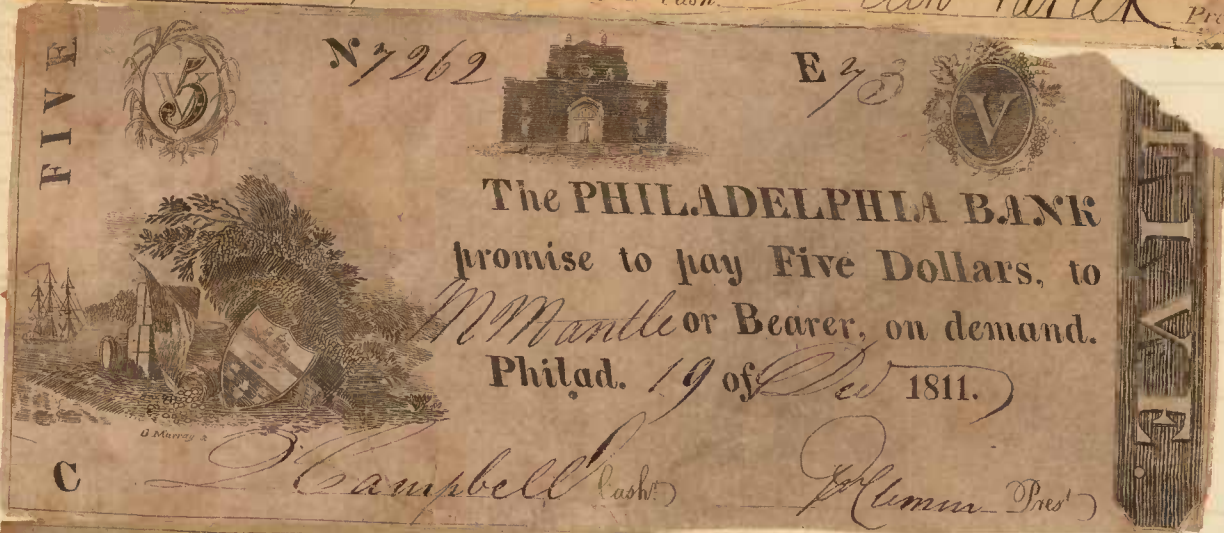 Cash.
FIVE
5
No 7262
E 73
V
The PHILADELPHIA BANK
promise to pay Five Dollars, to
M Mantle or Bearer, on demand.
Philad. 19 of Dec 1811.
G Murray
C
Campbell Cashr
Presr
FIVE.